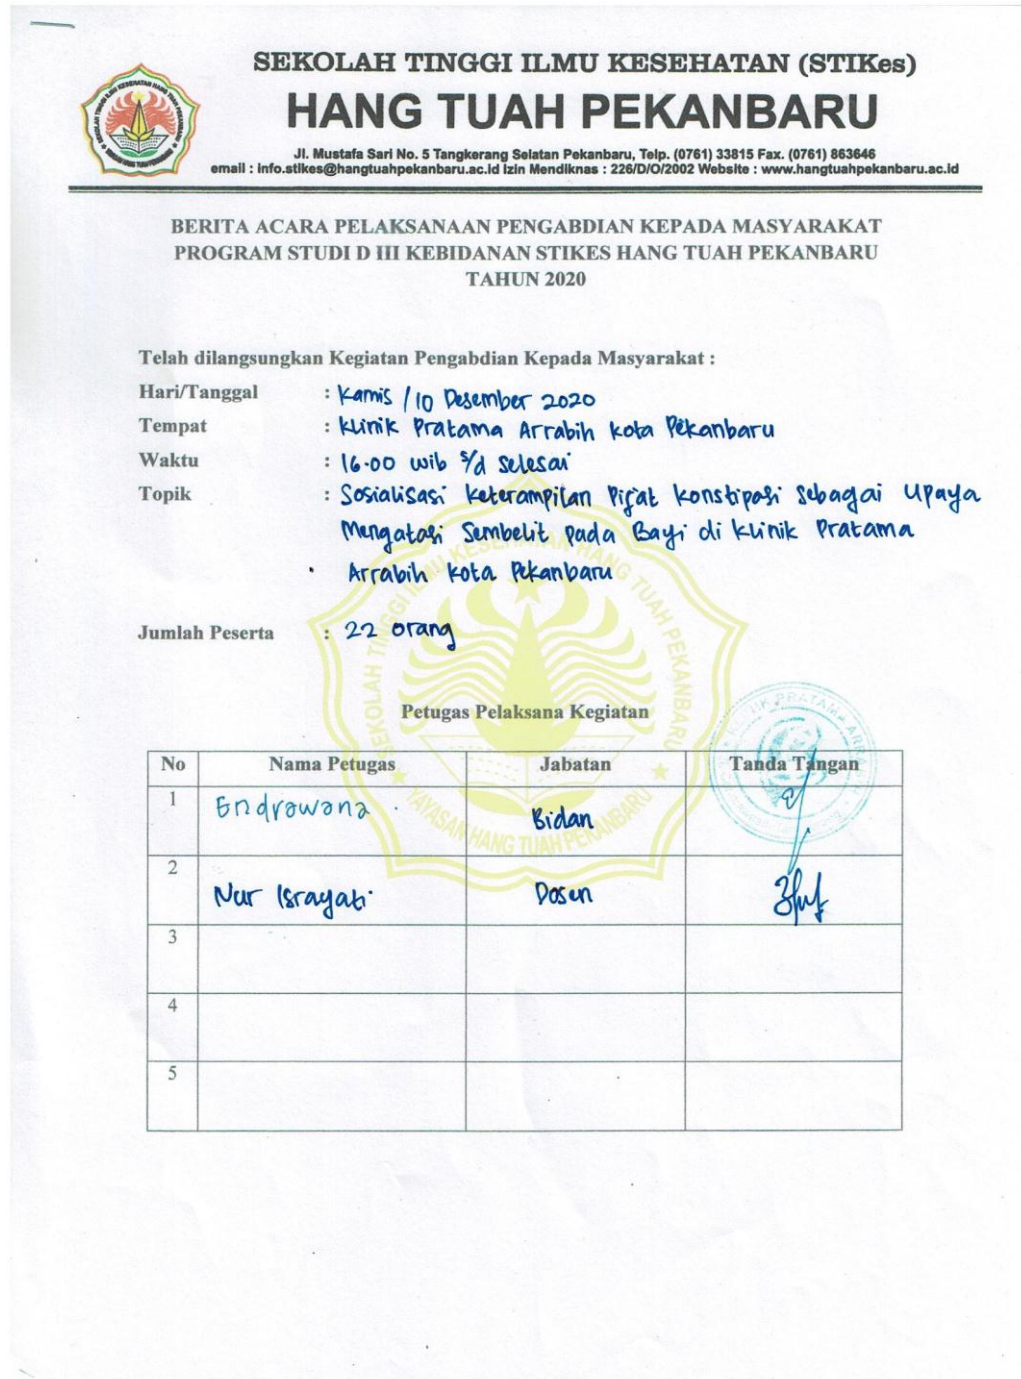 SEKOLAH TINGGI ILMU KESEHATAN (STIKes)
HANG TUAH PEKANBARU
Jl. Mustafa Sari No. 5 Tangkerang Selatan Pekanbaru, Telp. (0761) 33815 Fax. (0761) 863646
email : info.stikes@hangtuahpekanbaru.ac.id Izin Mendiknas : 226/D/O/2002 Website : www.hangtuahpekanbaru.ac.id
BERITA ACARA PELAKSANAAN PENGABDIAN KEPADA MASYARAKAT
PROGRAM STUDI D III KEBIDANAN STIKES HANG TUAH PEKANBARU
TAHUN 2020
Telah dilangsungkan Kegiatan Pengabdian Kepada Masyarakat :
Hari/Tanggal : Kamis / 10 Desember 2020
Tempat : Klinik Pratama Arrabih Kota Pekanbaru
Waktu : 16.00 wib s/d selesai
Topik : Sosialisasi Keterampilan Pijat Konstipasi sebagai Upaya
Mengatasi Sembelit pada Bayi di Klinik Pratama
Arrabih Kota Pekanbaru
Jumlah Peserta : 22 orang
SEKOLAH TINGGI ILMU KESEHATAN HANG TUAH PEKANBARU
YAYASAN HANG TUAH PEKANBARU
Petugas Pelaksana Kegiatan
No Nama Petugas Jabatan Tanda Tangan
1 Endrawana Bidan
2 Nur Israyati Dosen
3
4
5